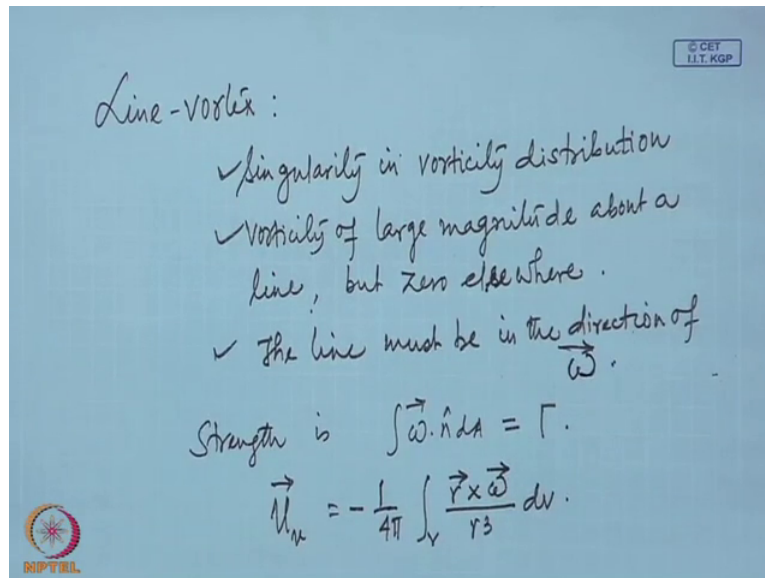 © CET
I.I.T. KGP
Line-vortex :
✓ Singularity in vorticity distribution
✓ Vorticity of large magnitude about a
line, but zero elsewhere.
✓ The line must be in the direction of
$\vec{\omega}$.
Strength is $\int \vec{\omega} \cdot \hat{n} dA = \Gamma$.
$\vec{u}_v = -\frac{1}{4\pi} \int_V \frac{\vec{r} \times \vec{\omega}}{r^3} dv$.
NPTEL